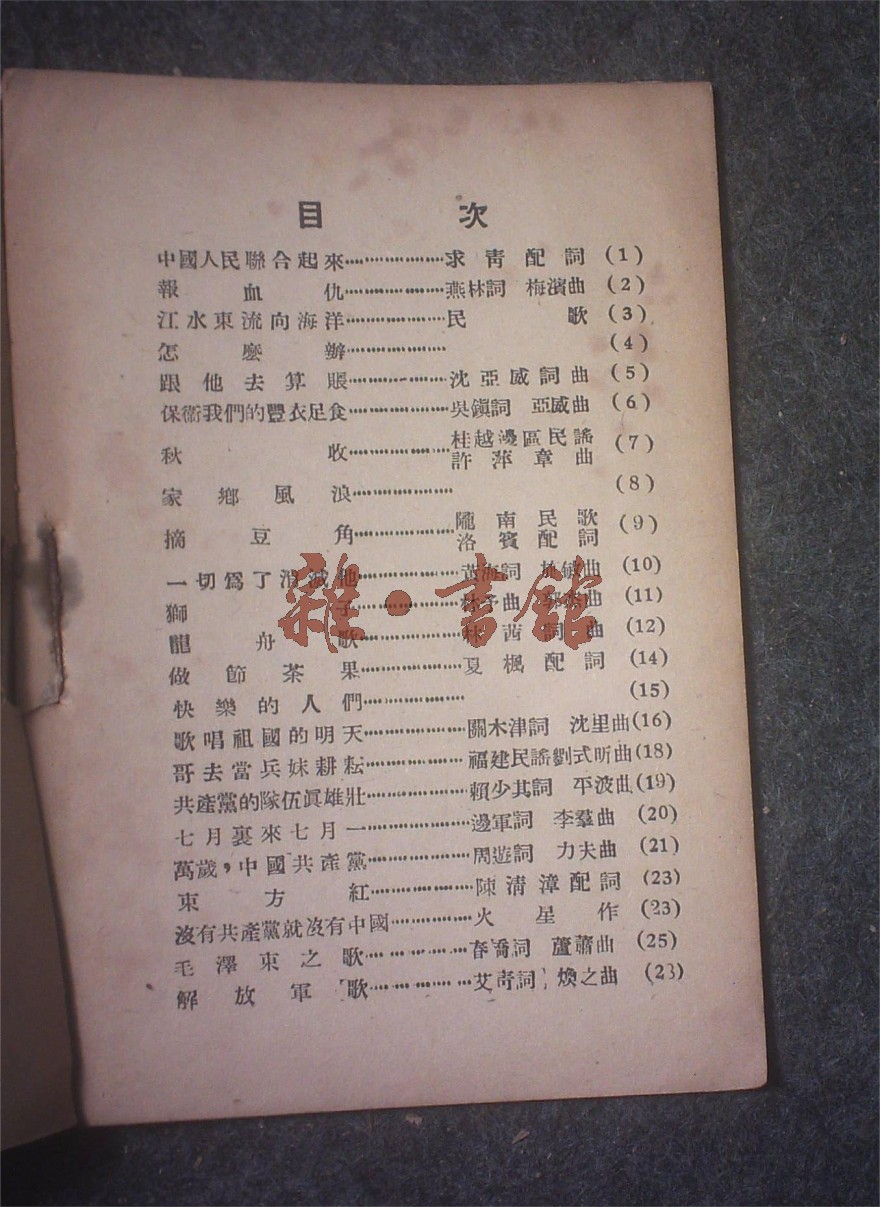 目 次
中國人民聯合起來………………求青配詞 (1)
報血仇………………燕林詞 梅濱曲 (2)
江水東流向海洋………………民歌 (3)
怎麼辦……………… (4)
跟他去算賬………………沈亞威詞曲 (5)
保衞我們的豐衣足食………………吳鎭詞 亞威曲 (6)
秋收………………桂越邊區民謠 許萍章曲 (7)
家鄉風浪……………… (8)
摘豆角………………隴南民歌 洛賓配詞 (9)
一切爲了消滅他………………黃海詞 曲 (10)
獅子………………林予曲 曲 (11)
龍舟歌………………林茜詞曲 (12)
做節茶果………………夏楓配詞 (14)
快樂的人們……………… (15)
歌唱祖國的明天………………關木津詞 沈里曲 (16)
哥去當兵妹耕耘………………福建民謠劉式昕曲 (18)
共產黨的隊伍眞雄壯………………賴少其詞 平波曲 (19)
七月裏來七月一………………邊軍詞 李羣曲 (20)
萬歲，中國共產黨………………周遊詞 力夫曲 (21)
東方紅………………陳清漳配詞 (23)
沒有共產黨就沒有中國………………火星作 (23)
毛澤東之歌………………春喬詞 蘆蕭曲 (25)
解放軍歌………………艾奇詞 煥之曲 (23)
雜·書館